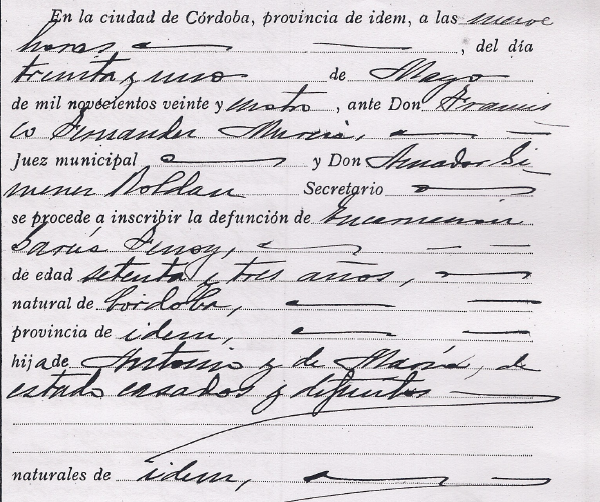 En la ciudad de Córdoba, provincia de idem, a las nueve
horas, del día
treinta y uno de Mayo
de mil novecientos veinte y cuatro, ante Don Francis
co Fernandez Murcia,
Juez municipal y Don Amador Gi-
menez Roldan Secretario
se procede a inscribir la defunción de Encarnación
de edad setenta y tres años,
natural de Córdoba,
provincia de idem,
hija de Antonio y de María, de
estado casados y difuntos
naturales de idem,